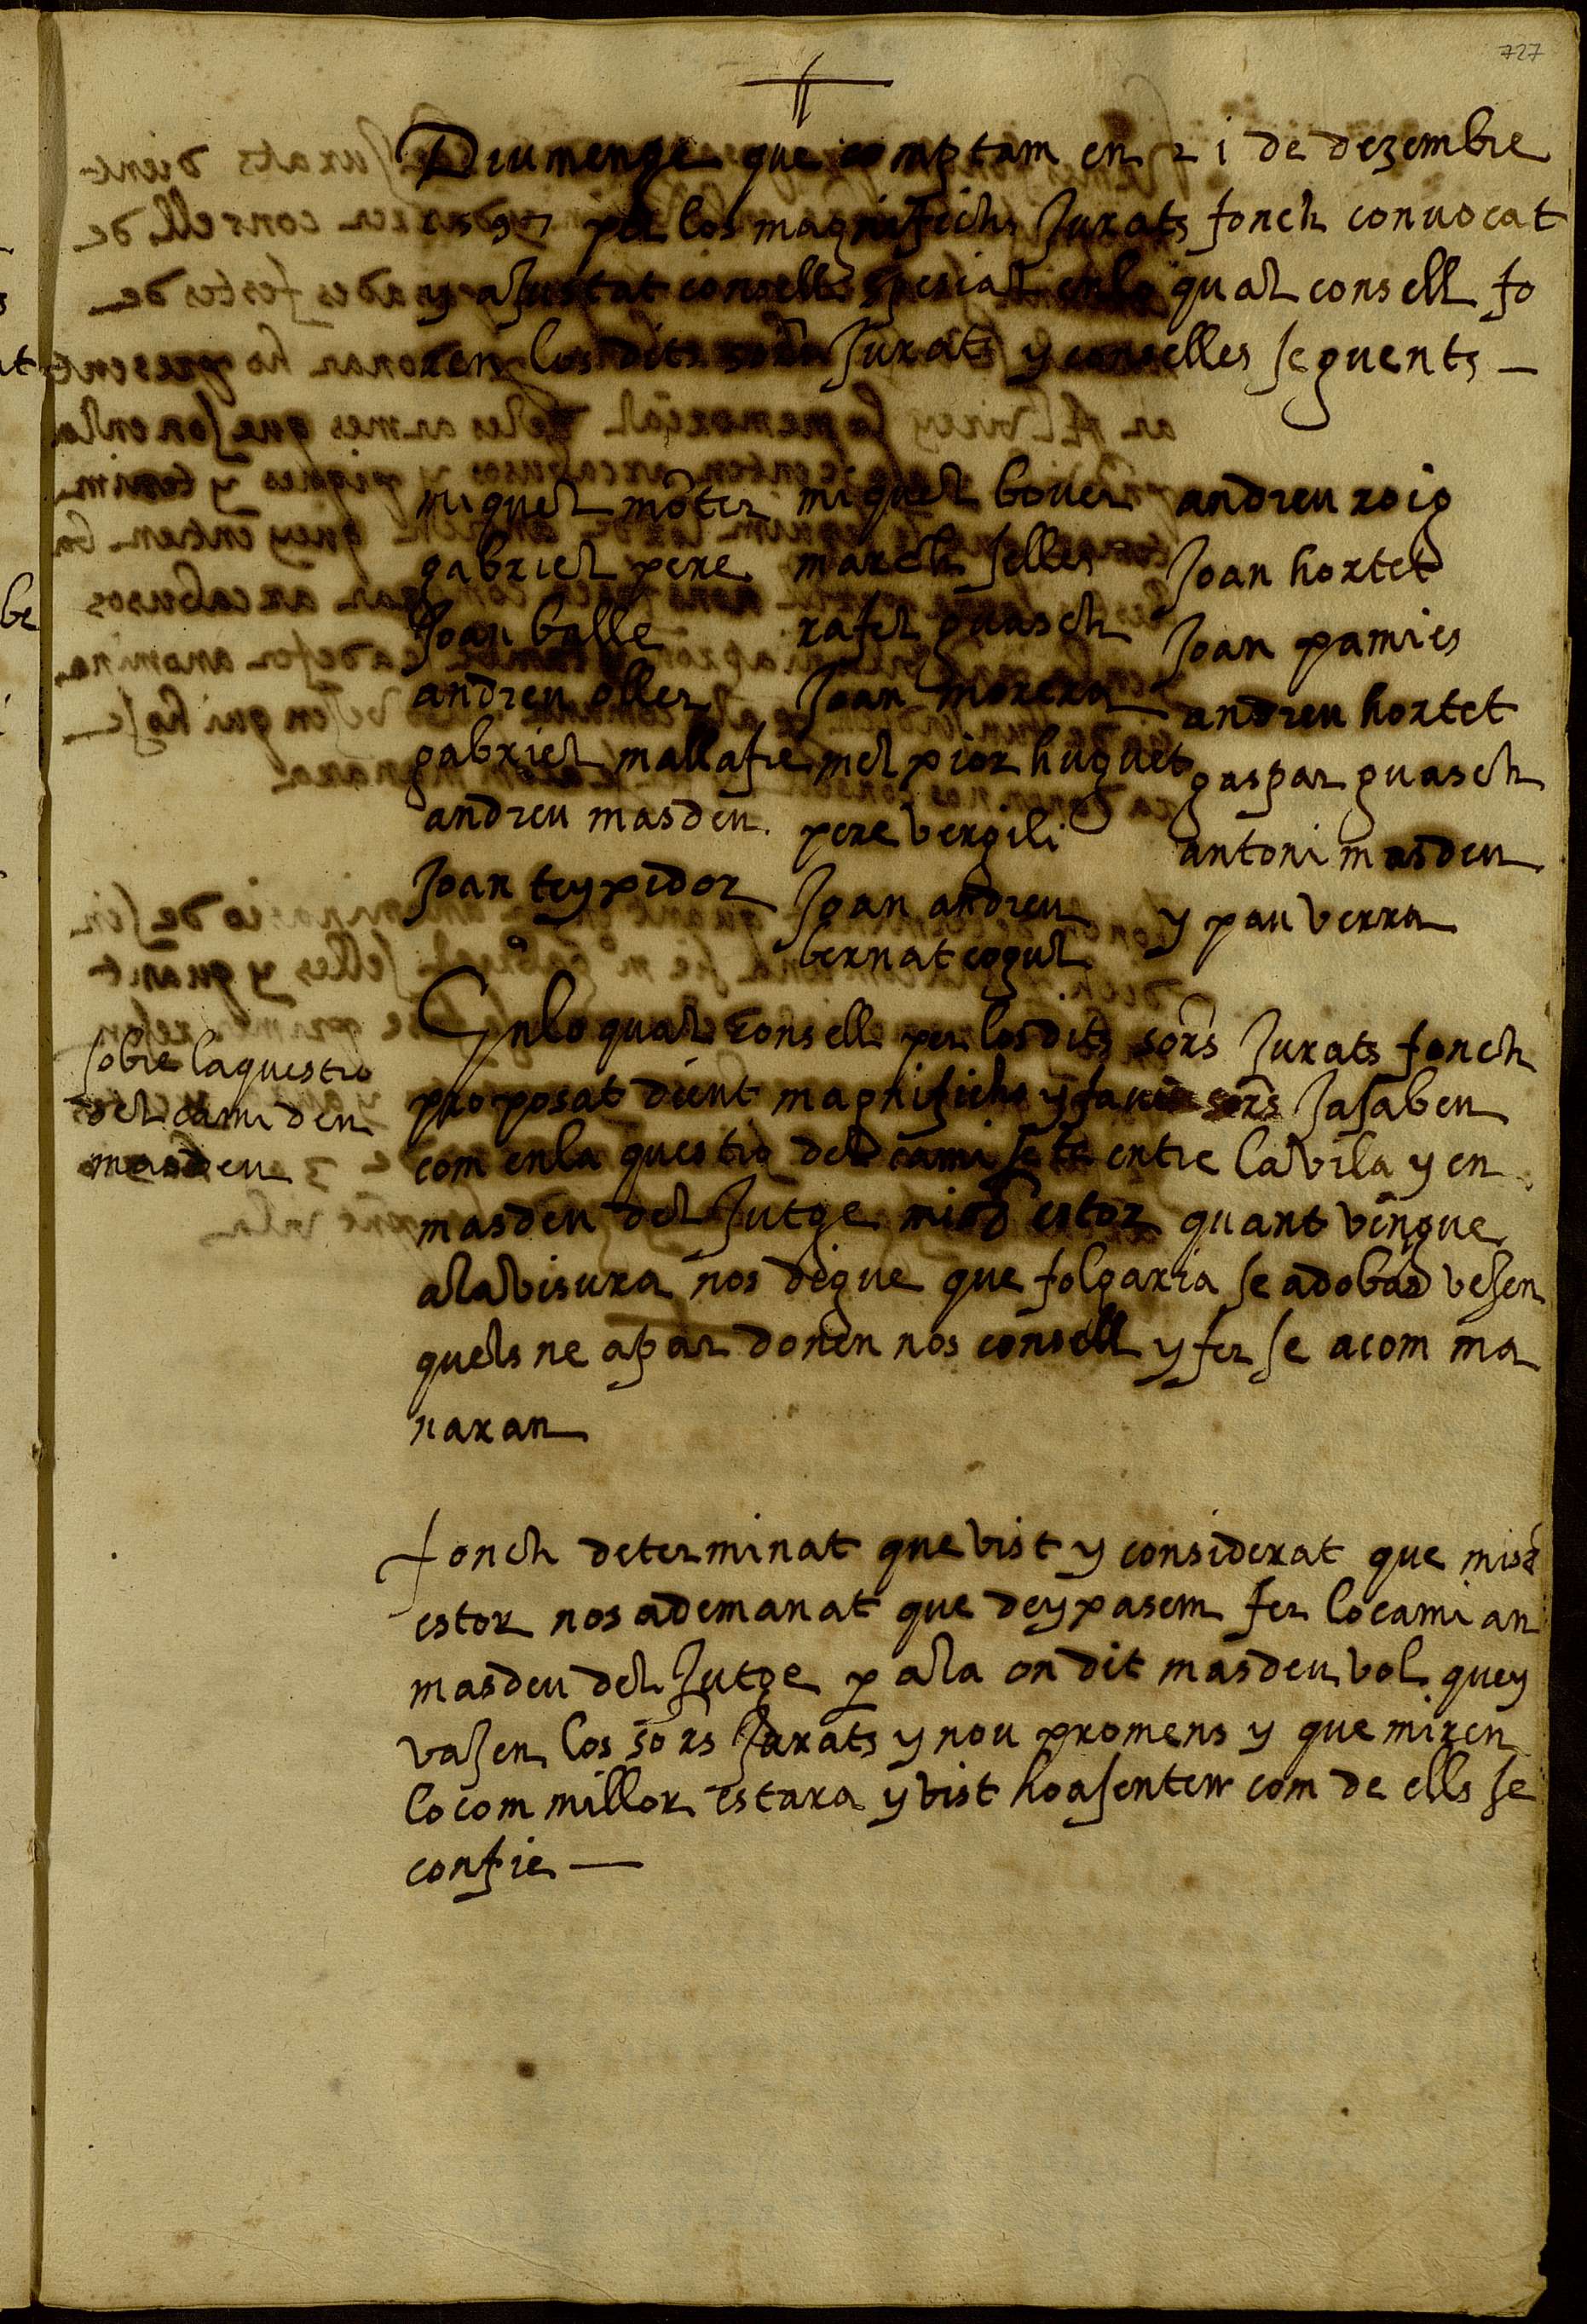 727
Diumenge que comptam en 21 de dezembre
1597 per los magnifichs Jurats fonch convocat
y ajustat consell spesial en lo qual consell fo
ren los dits sors Jurats y conselles seguents
miquel moter miquel bover andreu roig
gabriel pere march selles Joan hortet
Joan balle rafel guasch Joan pamies
andreu oller Joan morera andreu hortet
gabriel mallafre melpior huguet gaspar guasch
andreu masdeu pere vergili antoni masdeu
Joan teypidor Joan andreu y pau verra
bernat cogul
sobre la questio
del cami den
masdeu
En lo qual consell per los dits sors Jurats fonch
proposat dient magnifichs y savis sors Ja saben
com en la questio del cami se te entre la vila y en
masdeu del Jutge misr estor quant vingue
a la visura nos digue que folgaria se adobas vesen
quels ne apar donen nos consell y fer se a com ma
naran
fonch determinat que vist y considerat que misr
estor nos a demanat que deypasem fer lo cami an
masdeu del Jutge p ala on dit masdeu vol quey
vasen los sors Jurats y nou promens y que miren
lo com millor estara y vist ho asenten com de ells se
confie